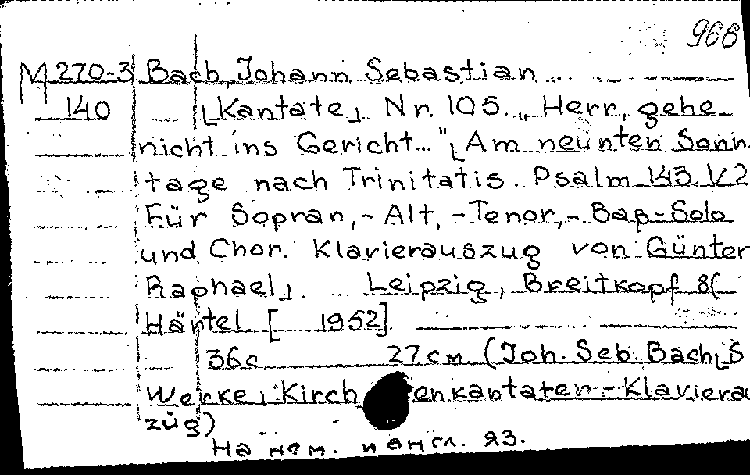 968
M 270-3 Bach, Johann Sebastian
140 [Kantate] Nr. 105. „Herr, gehe
nicht ins Gericht..." [Am neunten Sonn
tage nach Trinitatis. Psalm 143. V. 2
Für Sopran,- Alt, -Tenor,- Baß-Solo
und Chor. Klavierauszug von Günter
Raphael]. Leipzig, Breitkopf &
Härtel [1952]
36c 27cm (Joh. Seb. Bach['s
Werke: Kirchenkantaten - Klaviera
züg)
На нем. и англ. яз.